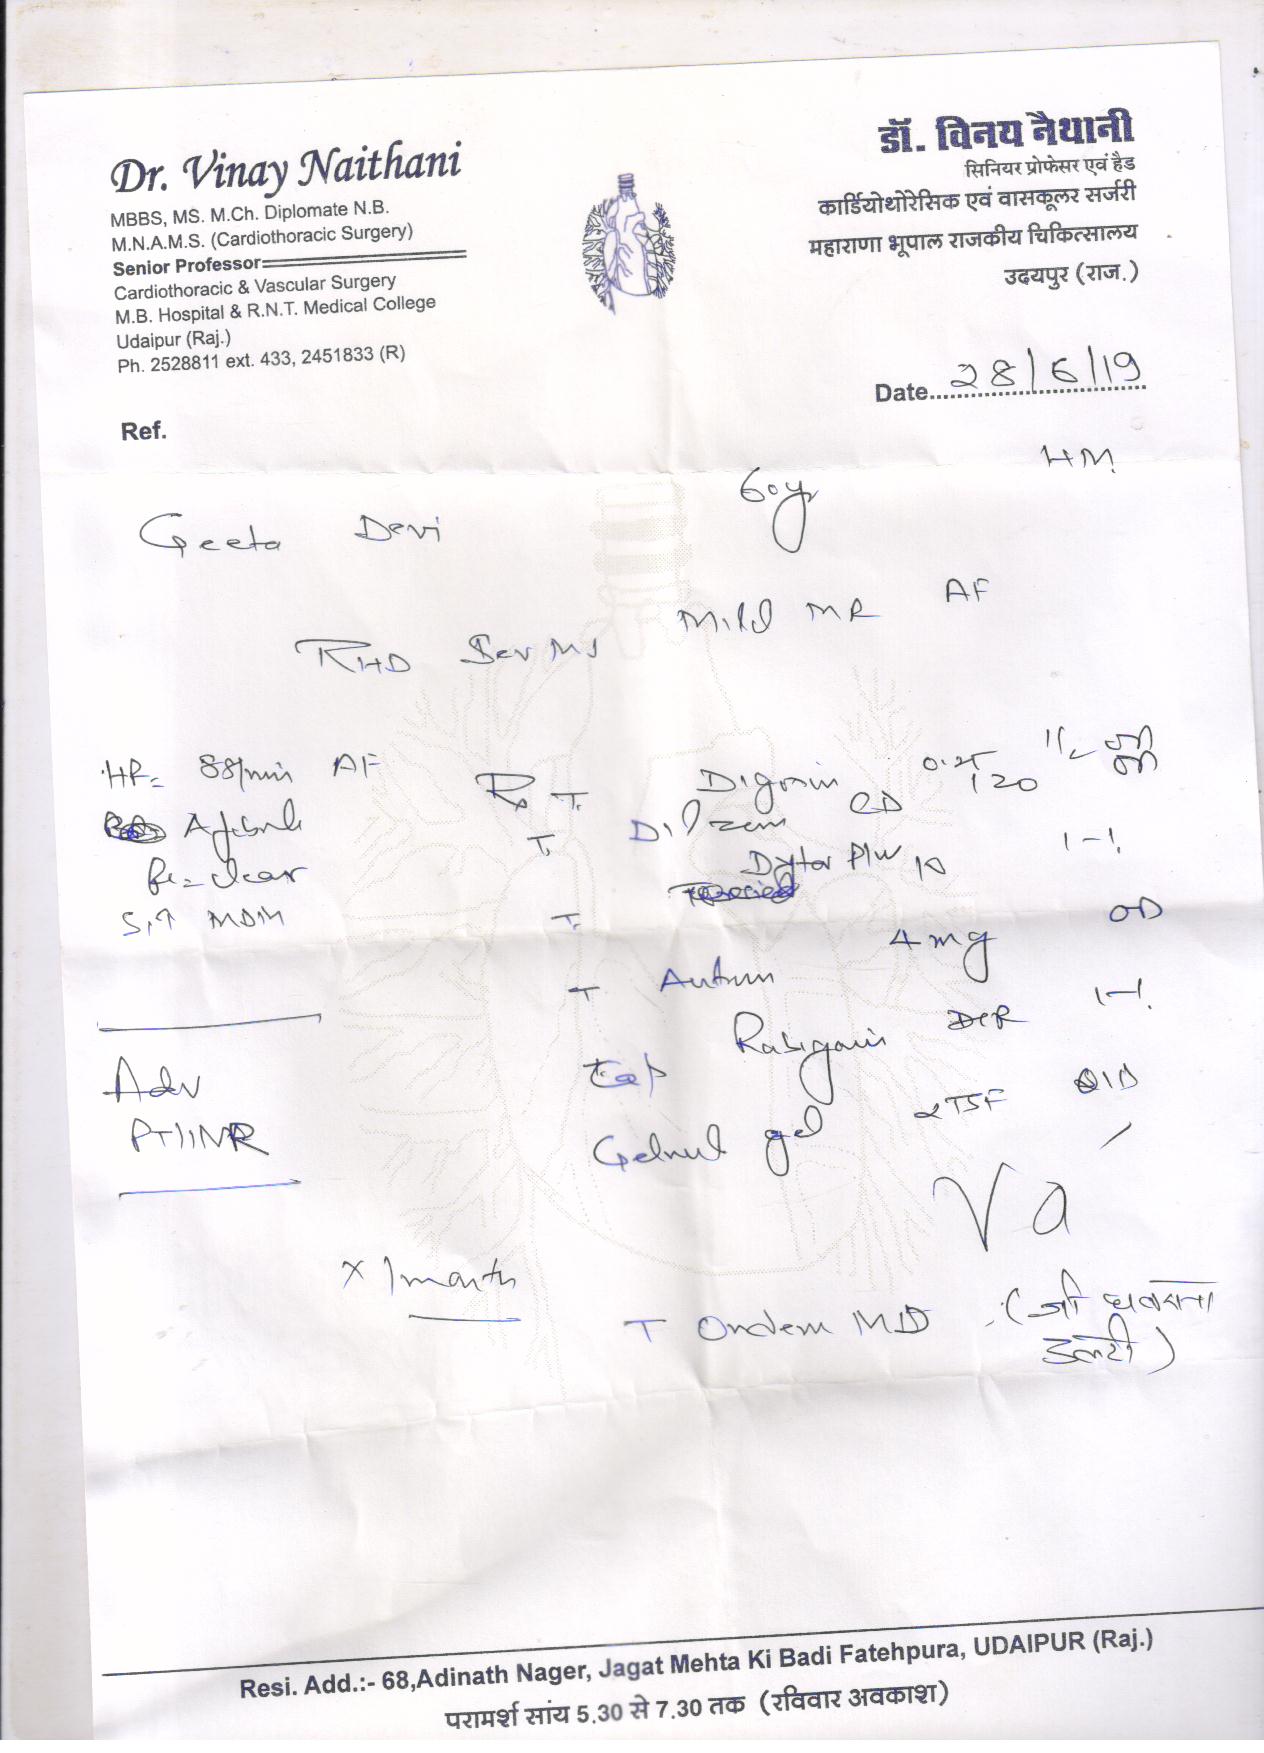 Dr. Vinay Naithani
MBBS, MS. M.Ch. Diplomate N.B.
M.N.A.M.S. (Cardiothoracic Surgery)
Senior Professor
Cardiothoracic & Vascular Surgery
M.B. Hospital & R.N.T. Medical College
Udaipur (Raj.)
Ph. 2528811 ext. 433, 2451833 (R)
डॉ. विनय नैथानी
सिनियर प्रोफेसर एवं हैड
कार्डियोथोरेसिक एवं वासकूलर सर्जरी
महाराणा भूपाल राजकीय चिकित्सालय
उदयपुर (राज.)
Date 28/6/19
Ref.
HM
Geeta Devi 60yr
RHD Sev MS Mild MR AF
HR= 88/min AF
Afebrile
clear
S1↑ MDM
Adv
PT/INR
Rx T. Digoxin 0.25 1/2 OD
T. Dilzem CD 120 OD
T. Dytor Plus 10 1-1
T 4mg OD
Cap DSR 1-1
Gelusil gel 2TSF QID
x 1 month
T Ondem MD (जी घबराना
उल्टी)
Resi. Add.:- 68,Adinath Nager, Jagat Mehta Ki Badi Fatehpura, UDAIPUR (Raj.)
परामर्श सांय 5.30 से 7.30 तक (रविवार अवकाश)